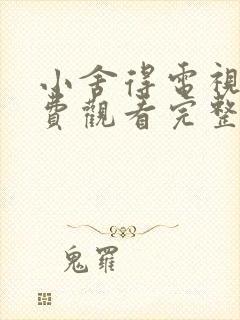 小舍得電視
費觀看完整
鬼羅